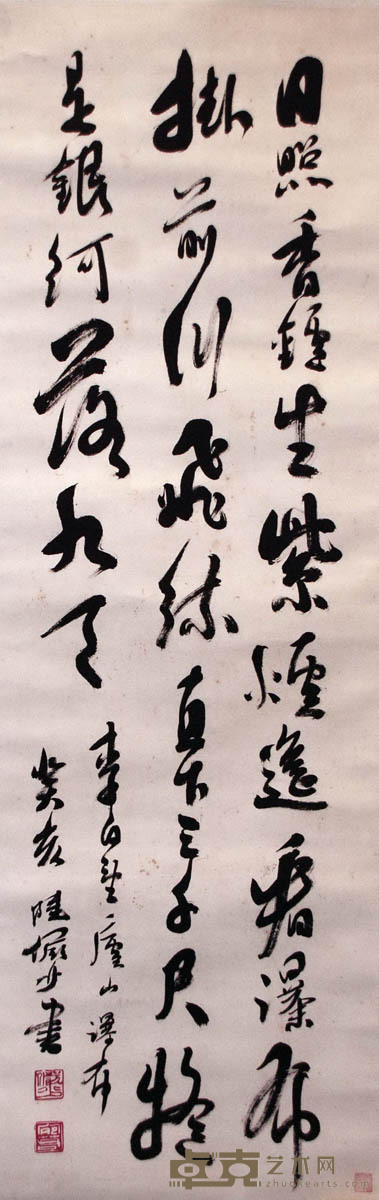 日照香鑪生紫煙遙看瀑布
掛前川飛流直下三千尺疑
是銀河落九天
李白望廬山瀑布
癸亥 陸儼少書
卓克艺术网
www.zhuokearts.com